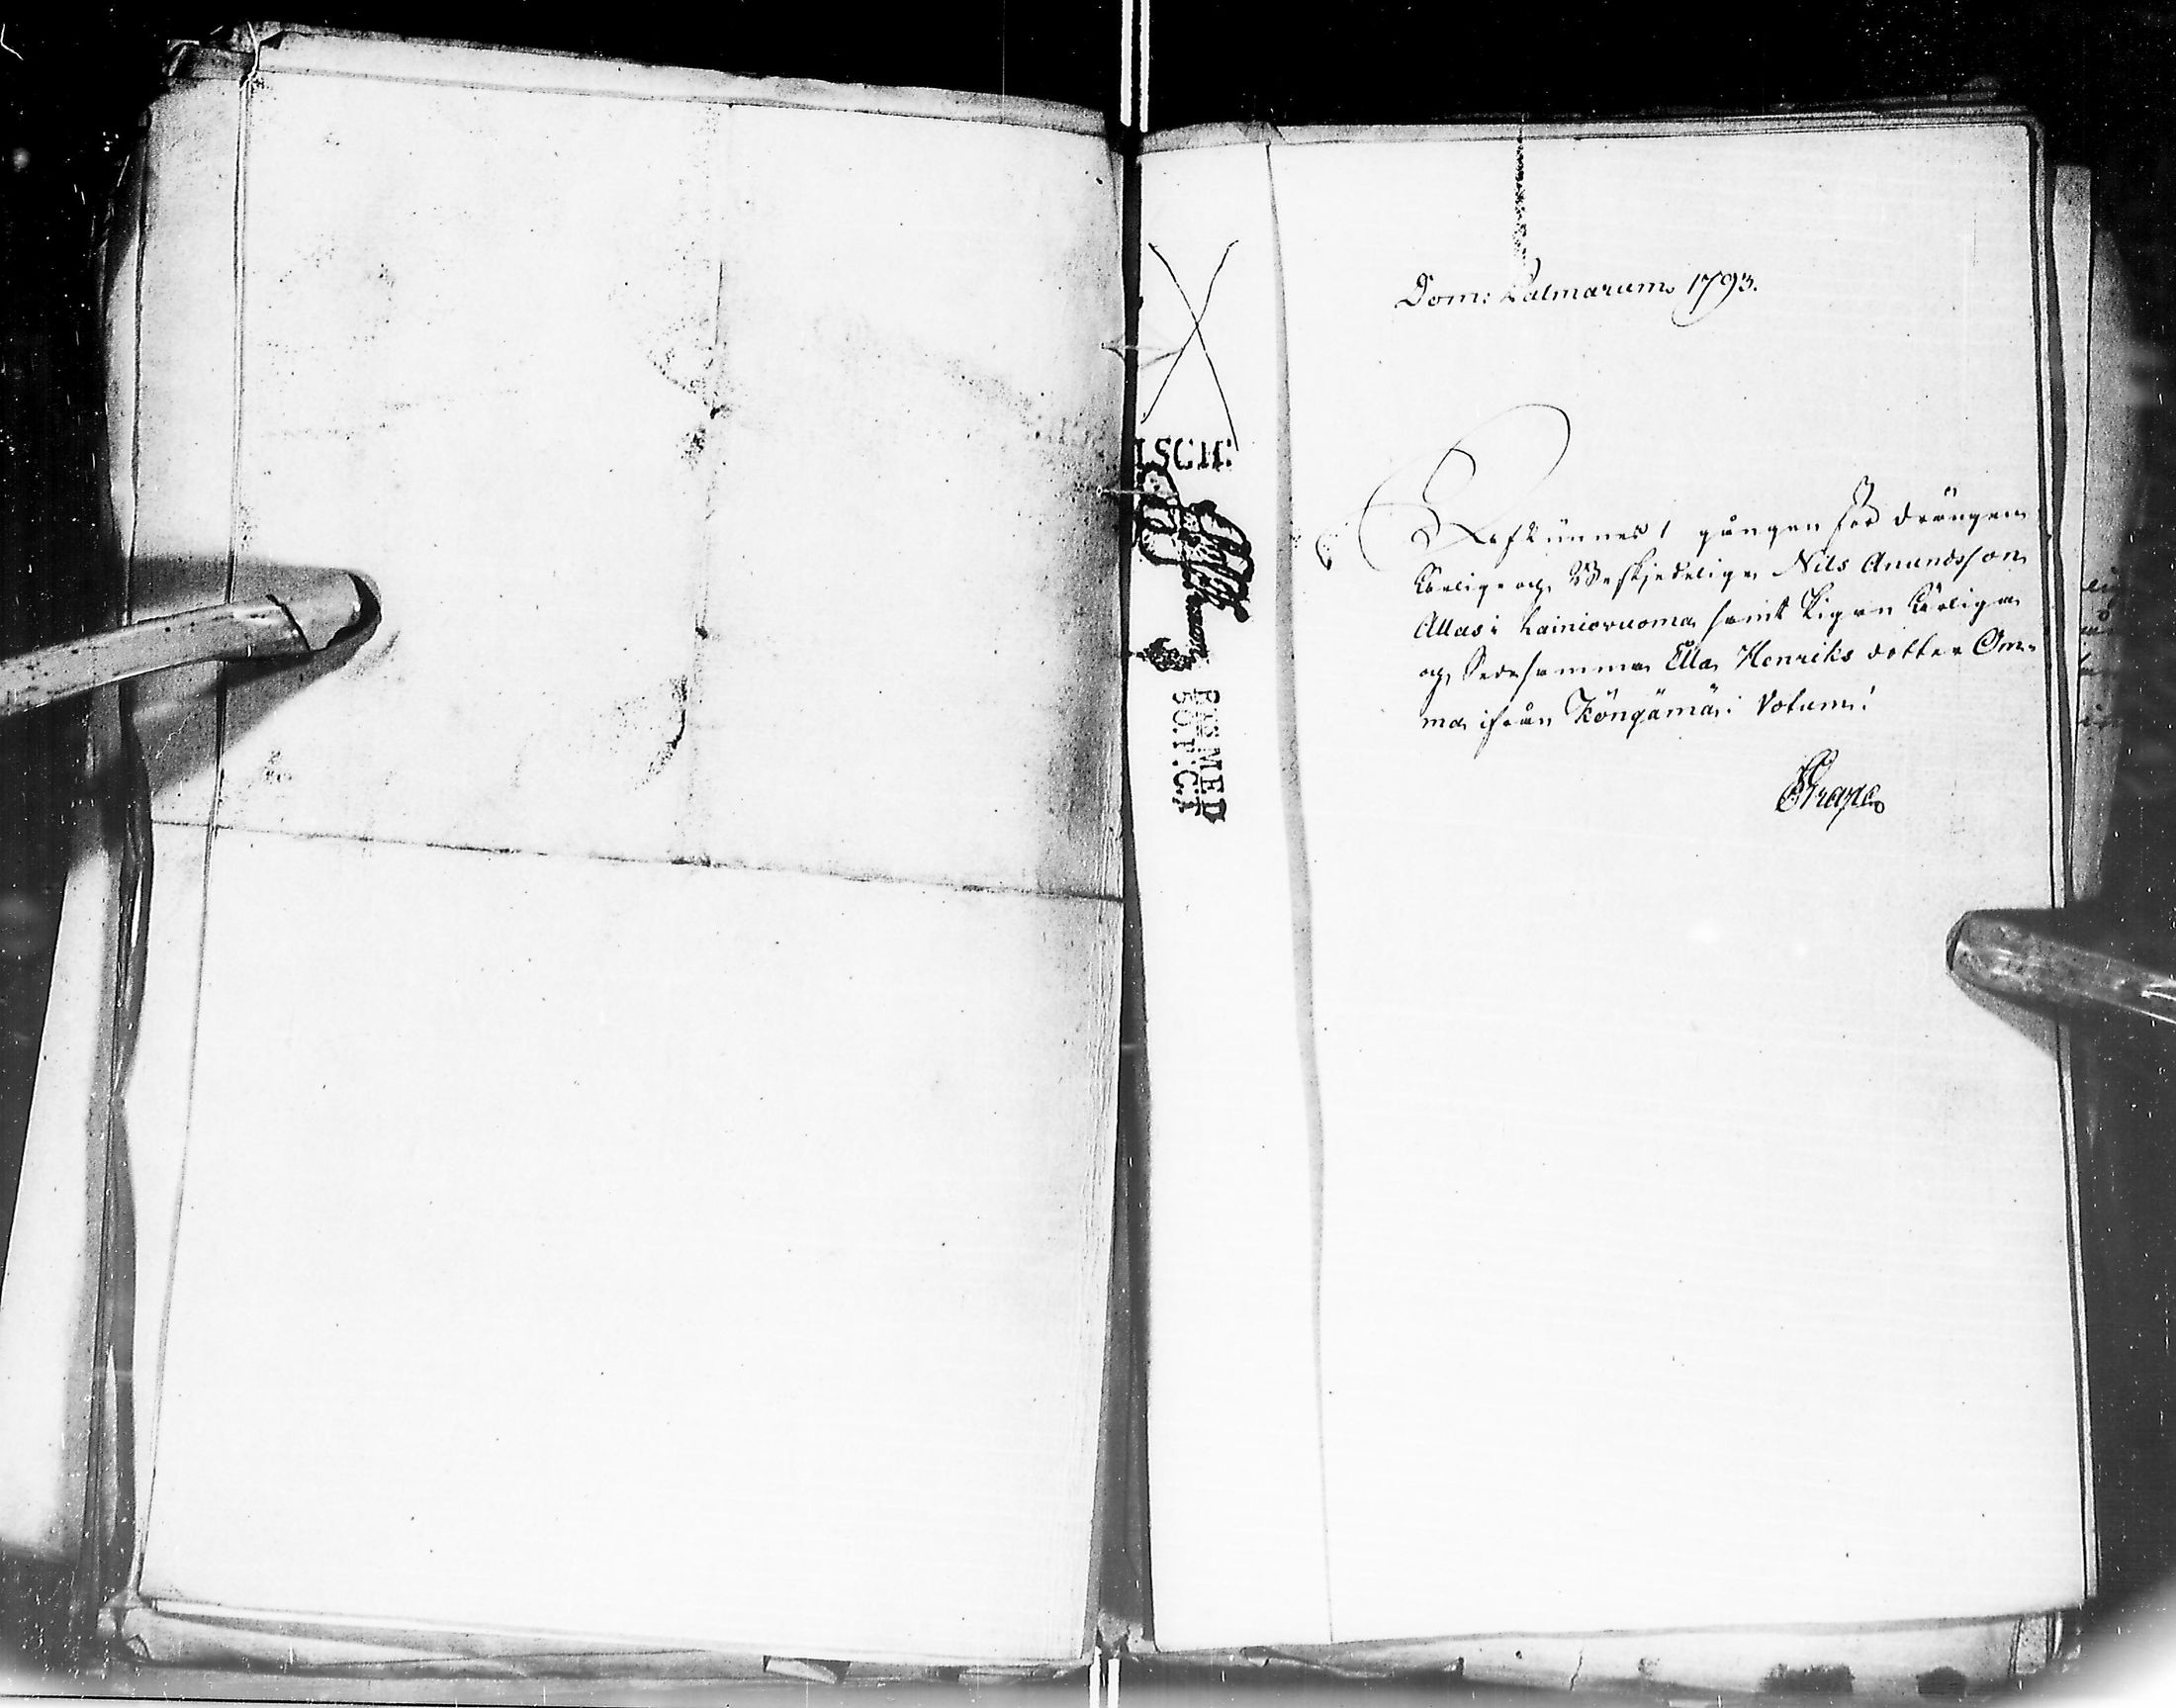 Dom: Palmarum 1793.
Afkunnes 1 gången för drängen
Ärlig och Beskjedelig Nils Anundsson
Allas i Lainiovuoma samt Pigan Ärliga
och Sedesamma Ella Henriks dotter Om-
ma ifrån Köngämä: Votum!
EGrape